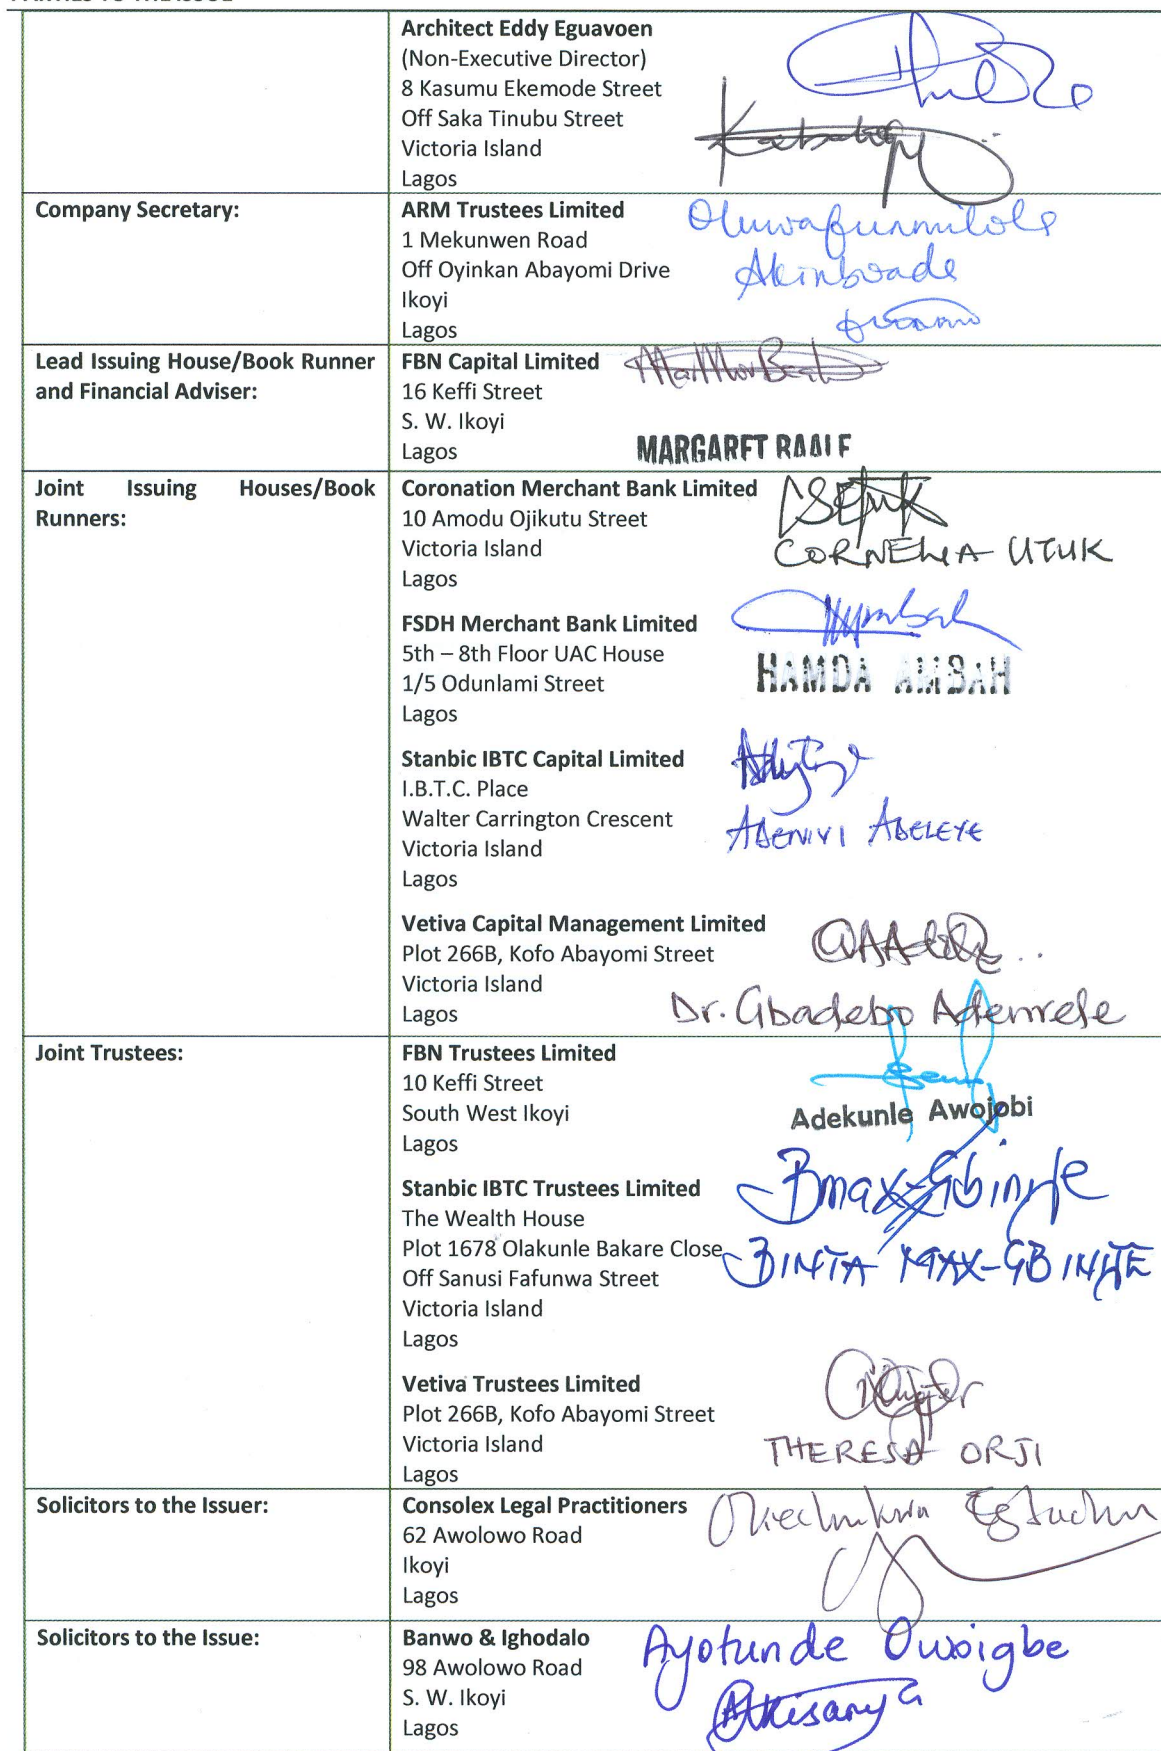 PARTIES TO THE ISSUE
Architect Eddy Eguavoen
(Non-Executive Director)
8 Kasumu Ekemode Street
Off Saka Tinubu Street
Victoria Island
Lagos
Company Secretary:
ARM Trustees Limited
1 Mekunwen Road
Off Oyinkan Abayomi Drive
Ikoyi
Lagos
Oluwafunmilola
Akinbwade
Lead Issuing House/Book Runner
and Financial Adviser:
FBN Capital Limited
16 Keffi Street
S. W. Ikoyi
Lagos
MARGARET
Joint Issuing Houses/Book
Runners:
Coronation Merchant Bank Limited
10 Amodu Ojikutu Street
Victoria Island
Lagos
CORNELIA UTUK
FSDH Merchant Bank Limited
5th – 8th Floor UAC House
1/5 Odunlami Street
Lagos
HAMDA AMBAH
Stanbic IBTC Capital Limited
I.B.T.C. Place
Walter Carrington Crescent
Victoria Island
Lagos
ADENIYI ADELEYE
Vetiva Capital Management Limited
Plot 266B, Kofo Abayomi Street
Victoria Island
Lagos
Dr. Gbadebo Adenrele
Joint Trustees:
FBN Trustees Limited
10 Keffi Street
South West Ikoyi
Lagos
Adekunle Awojobi
Stanbic IBTC Trustees Limited
The Wealth House
Plot 1678 Olakunle Bakare Close
Off Sanusi Fafunwa Street
Victoria Island
Lagos
Bmax-Gbinije
BINTA MAX-GBINIJE
Vetiva Trustees Limited
Plot 266B, Kofo Abayomi Street
Victoria Island
Lagos
THERESA ORJI
Solicitors to the Issuer:
Consolex Legal Practitioners
62 Awolowo Road
Ikoyi
Lagos
Okechukwu
Solicitors to the Issue:
Banwo & Ighodalo
98 Awolowo Road
S. W. Ikoyi
Lagos
Ayotunde Owoigbe